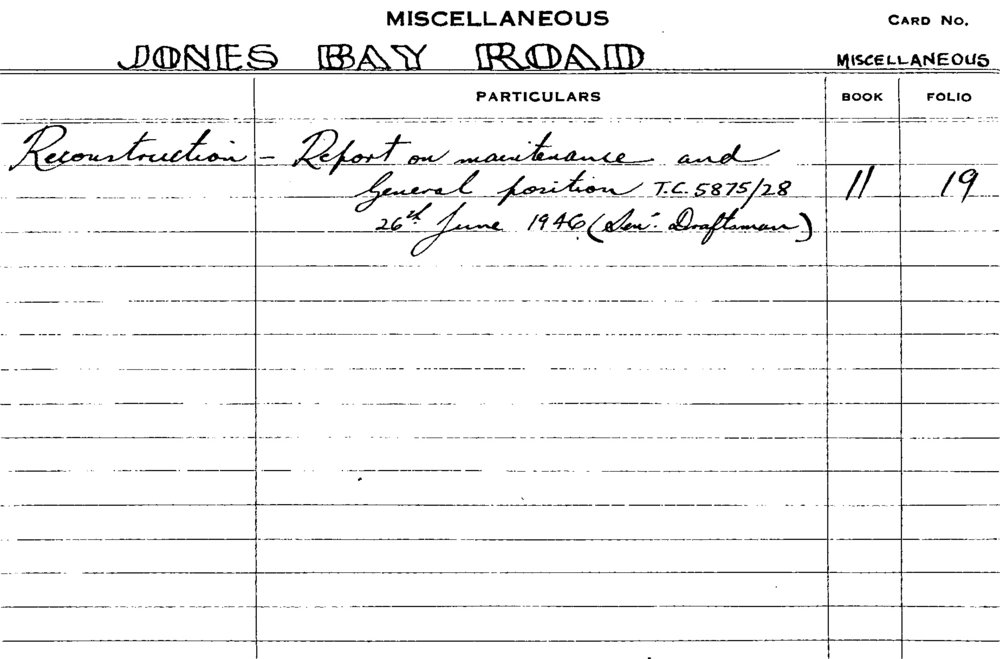 MISCELLANEOUS
CARD NO.
JONES BAY ROAD
MISCELLANEOUS
PARTICULARS BOOK FOLIO
Reconstruction – Report on maintenance and
General position T.C. 5875/28 11 19
26th June 1946 (Senr. Draftsman)